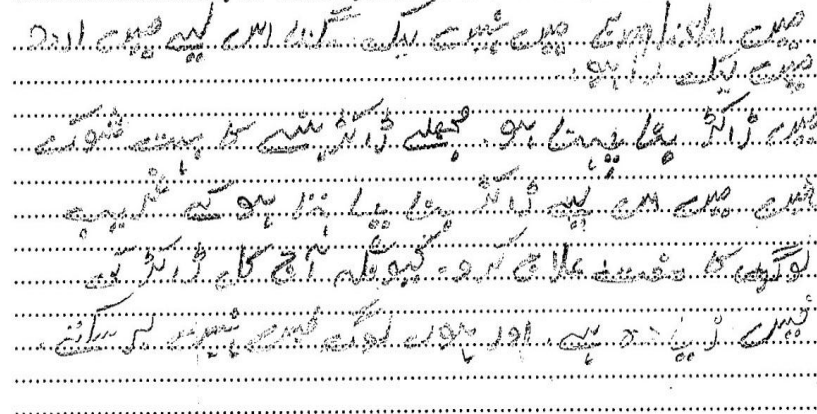 میں ... میں نہیں لیک گئ اس لیے میں اردو
میں لیک رہا ہو۔
میں ڈاکٹر بنا چہتا ہو۔ مجھے ڈاکٹر بننے کا بہت شوک
میں اس لیے ڈاکٹر بنا چا ہتا ہو کے غریب
لوگوں کا مفت علاج کرو۔ کیونکہ آج کل ڈاکٹر کی
فیس زیادہ ہے۔ اور لوگ فیس نہیں بر سکتے۔